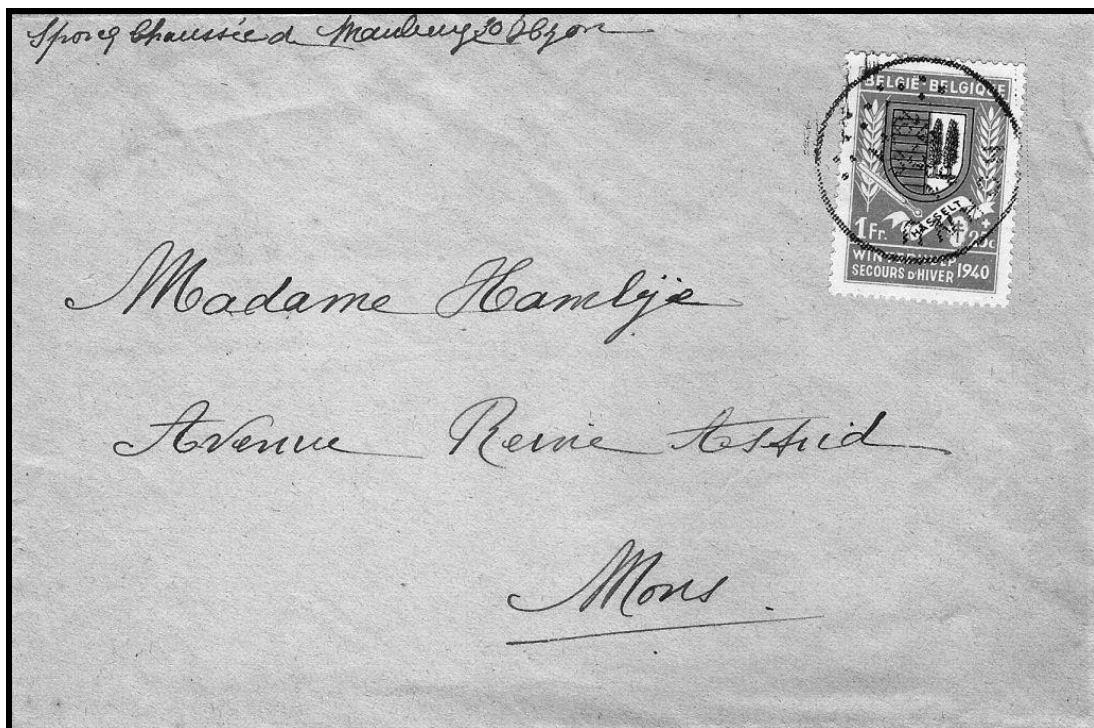 Sporcq Chaussée d Maubeuge 30 Hyon
BELGIË-BELGIQUE
HASSELT
1 Fr.
WINTERHULP
SECOURS D'HIVER 1940
Madame Hamlije
Avenue Reine Astrid
Mons.